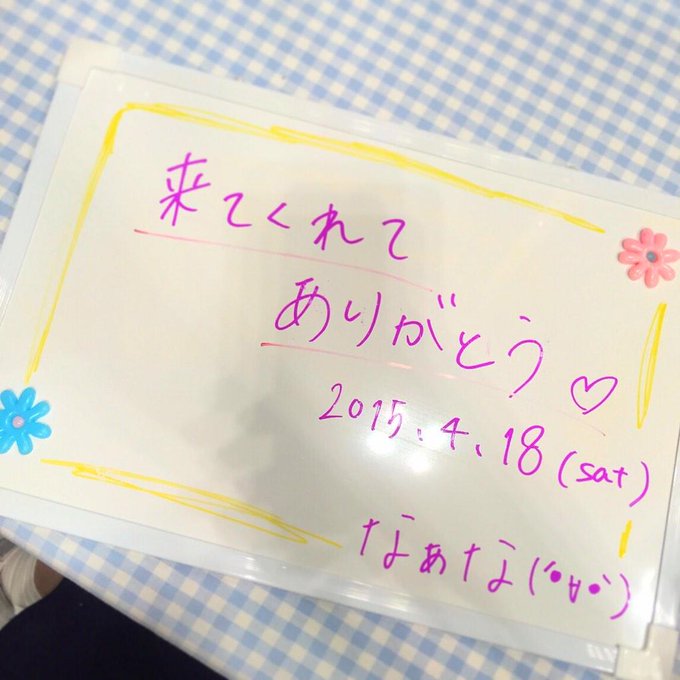 来てくれて
ありがとう♡
2015.4.18(sat)
なぁな(´•∀•`)